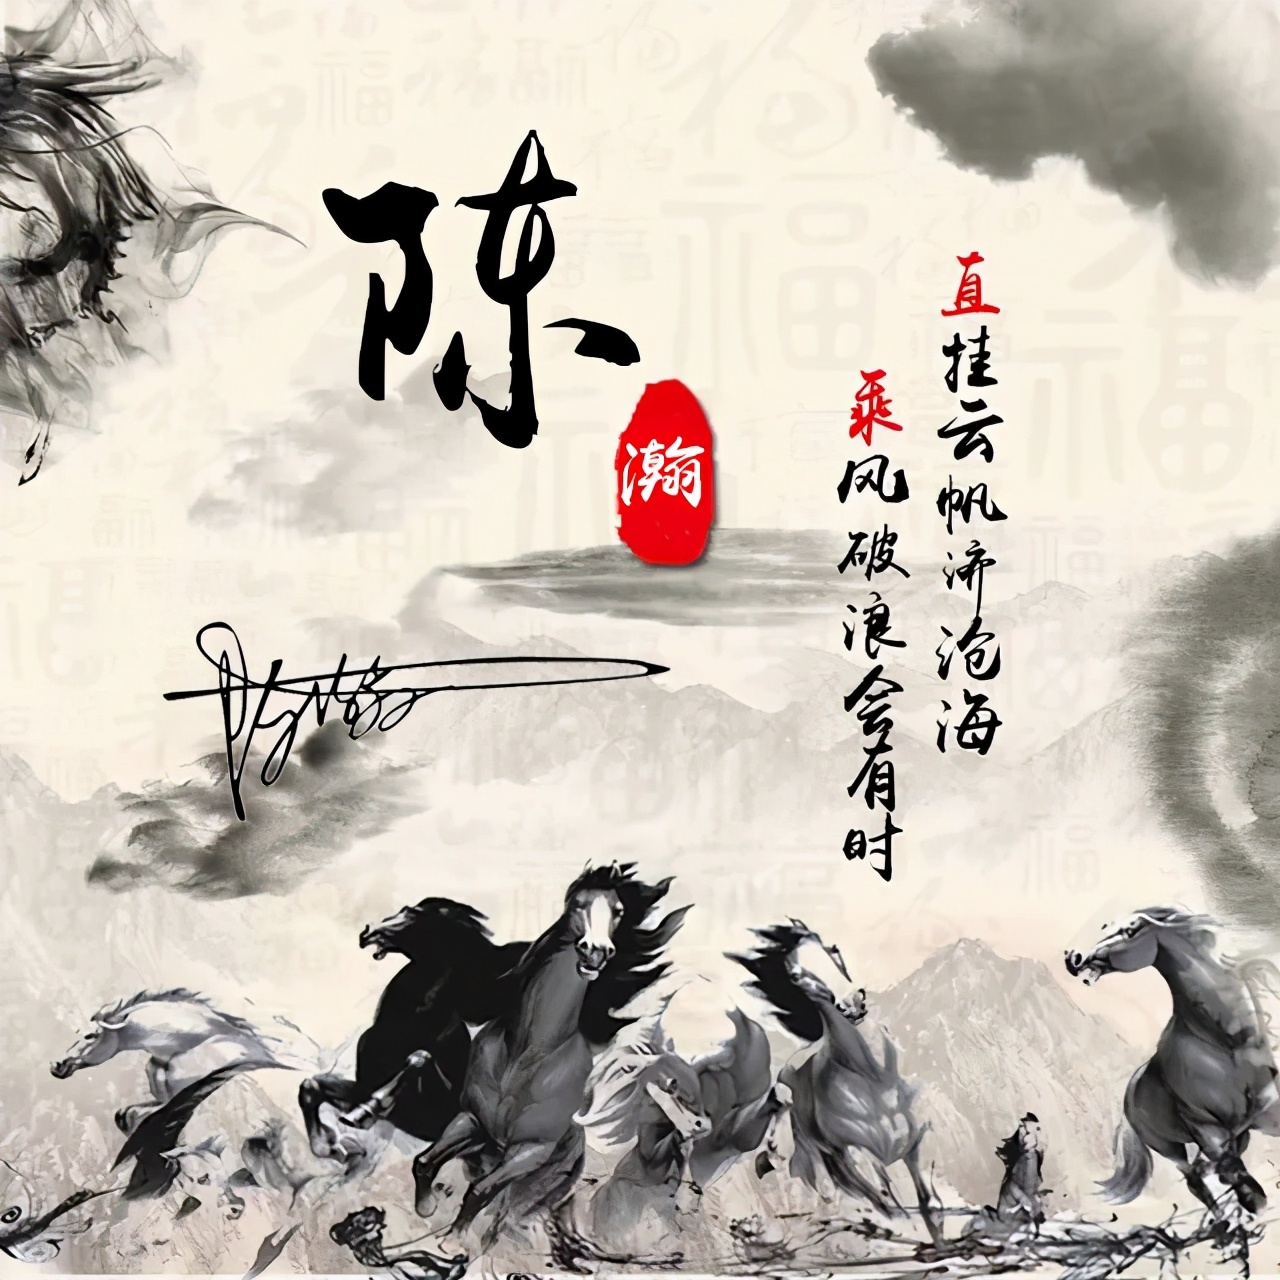 陈
瀚
直挂云帆济沧海
乘风破浪会有时